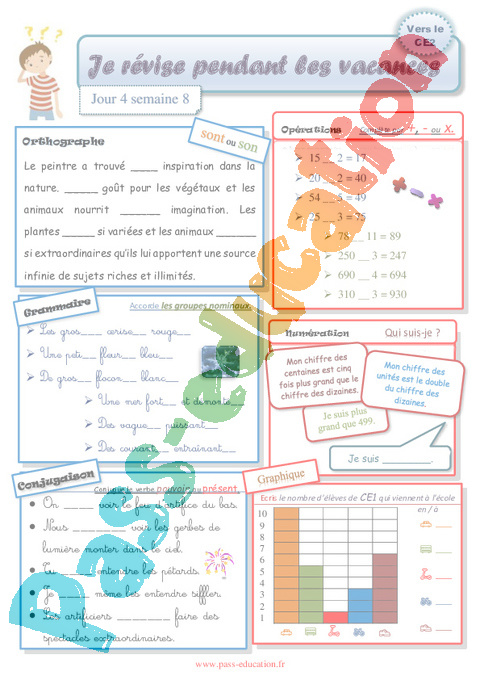 Vers le
CE2
Je révise pendant les vacances
Jour 4 semaine 8
sont ou son
Orthographe
Le peintre a trouvé ____ inspiration dans la
nature. _____ goût pour les végétaux et les
animaux nourrit ______ imagination. Les
plantes _____ si variées et les animaux ______
si extraordinaires qu'ils lui apportent une source
infinie de sujets riches et illimités.
Opérations
Complète par +, - ou X.
15 __ 2 = 17
20 __ 2 = 40
54 __ 5 = 49
25 __ 3 = 75
78 __ 11 = 89
250 __ 3 = 247
690 __ 4 = 694
310 __ 3 = 930
Grammaire
Accorde les groupes nominaux.
Les gros___ cerise__ rouge__
Une peti__ fleur__ bleu__
De gros__ flocon__ blanc__
Une mer fort__ et démonté__
Des vague__ puissant__
Des courant__ entraînant__
Numération
Qui suis-je ?
Mon chiffre des
centaines est cinq
fois plus grand que le
chiffre des dizaines.
Mon chiffre des
unités est le double
du chiffre des
dizaines.
Je suis plus
grand que 499.
Je suis ________.
Conjugaison
Conjugue le verbe pouvoir au présent.
On ______ voir le feu d'artifice du bas.
Nous ________ voir les gerbes de
lumière monter dans le ciel.
Tu ______ entendre les pétards.
Je ______ même les entendre siffler.
Les artificiers ________ faire des
spectacles extraordinaires.
Graphique
Ecris le nombre d'élèves de CE1 qui viennent à l'école
en / à
10
9
8
7
6
5
4
3
2
1
Pass-education
www.pass-education.fr